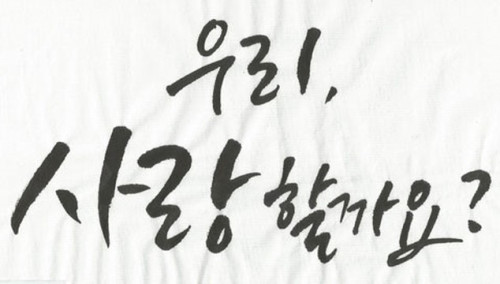 우리,
사랑할까요?